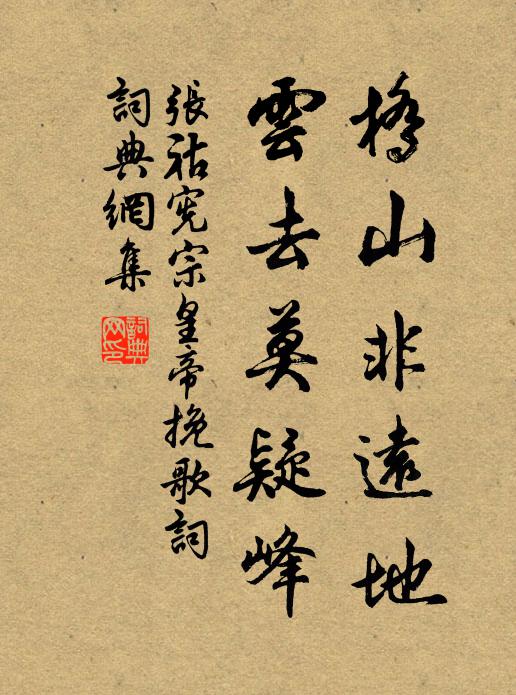 橋山非遠地
雲去莫疑峰
張祜憲宗皇帝挽歌詞
詞典網集
詞典网印